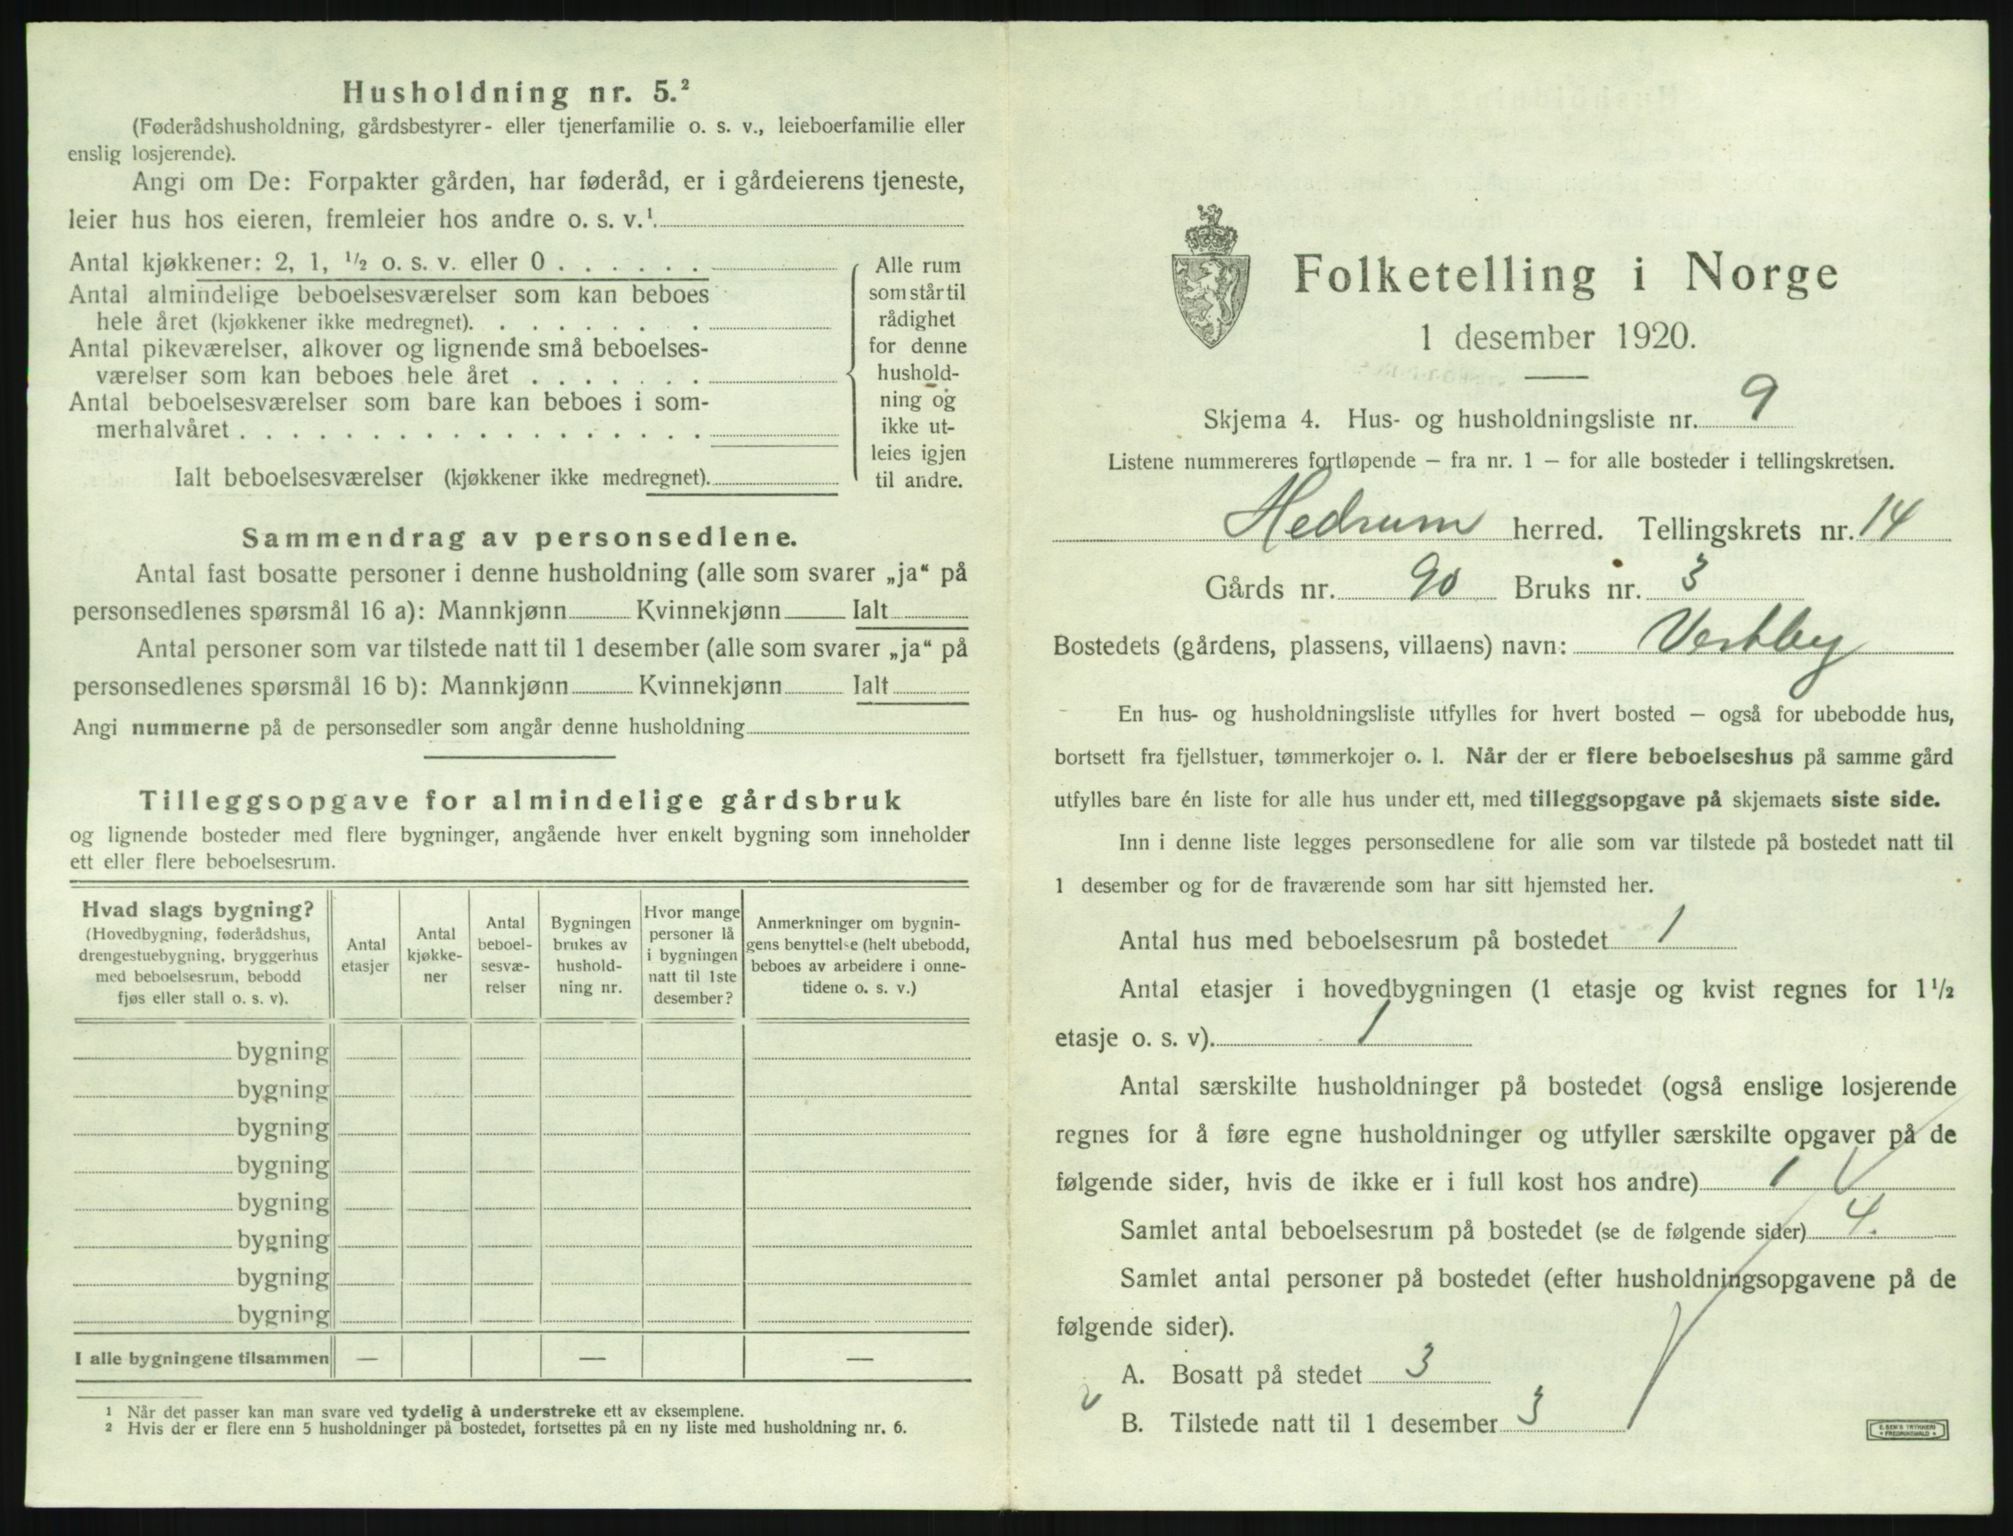 Husholdning nr. 5.²
(Føderådshusholdning, gårdsbestyrer- eller tjenerfamilie o. s. v., leieboerfamilie eller
enslig losjerende).
Angi om De: Forpakter gården, har føderåd, er i gårdeierens tjeneste,
leier hus hos eieren, fremleier hos andre o. s. v.¹
Antal kjøkkener: 2, 1, ½ o. s. v. eller 0 . . . . . .
Antal almindelige beboelsesværelser som kan beboes
hele året (kjøkkener ikke medregnet). . . . . . . . .
Antal pikeværelser, alkover og lignende små beboelses-
værelser som kan beboes hele året . . . . . . .
Antal beboelsesværelser som bare kan beboes i som-
merhalvåret . . . . . . . . . . . . . . . . . .
Ialt beboelsesværelser (kjøkkener ikke medregnet).
Alle rum
som står til
rådighet
for denne
hushold-
ning og
ikke ut-
leies igjen
til andre.
Sammendrag av personsedlene.
Antal fast bosatte personer i denne husholdning (alle som svarer „ja“ på
personsedlenes spørsmål 16 a): Mannkjønn Kvinnekjønn Ialt
Antal personer som var tilstede natt til 1 desember (alle som svarer „ja“ på
personsedlenes spørsmål 16 b): Mannkjønn Kvinnekjønn Ialt
Angi nummerne på de personsedler som angår denne husholdning
Tilleggsopgave for almindelige gårdsbruk
og lignende bosteder med flere bygninger, angående hver enkelt bygning som inneholder
ett eller flere beboelsesrum.
Hvad slags bygning?
(Hovedbygning, føderådshus,
drengestuebygning, bryggerhus
med beboelsesrum, bebodd
fjøs eller stall o. s. v).
Antal
etasjer
Antal
kjøkke-
ner
Antal
beboel-
sesvæ-
relser
Bygningen
brukes av
hushold-
ning nr.
Hvor mange
personer lå
i bygningen
natt til 1ste
desember?
Anmerkninger om bygnin-
gens benyttelse (helt ubebodd,
beboes av arbeidere i onne-
tidene o. s. v.)
bygning
bygning
bygning
bygning
bygning
bygning
bygning
bygning
I alle bygningene tilsammen — — —
¹ Når det passer kan man svare ved tydelig å understreke ett av eksemplene.
² Hvis der er flere enn 5 husholdninger på bostedet, fortsettes på en ny liste med husholdning nr. 6.
Folketelling i Norge
1 desember 1920.
Skjema 4. Hus- og husholdningsliste nr. 9
Listene nummereres fortløpende – fra nr. 1 – for alle bosteder i tellingskretsen.
Hedrum herred. Tellingskrets nr. 14
Gårds nr. 90 Bruks nr. 3
Bostedets (gårdens, plassens, villaens) navn: Vestby
En hus- og husholdningsliste utfylles for hvert bosted – også for ubebodde hus,
bortsett fra fjellstuer, tømmerkojer o. l. Når der er flere beboelseshus på samme gård
utfylles bare én liste for alle hus under ett, med tilleggsopgave på skjemaets siste side.
Inn i denne liste legges personsedlene for alle som var tilstede på bostedet natt til
1 desember og for de fraværende som har sitt hjemsted her.
Antal hus med beboelsesrum på bostedet 1
Antal etasjer i hovedbygningen (1 etasje og kvist regnes for 1½
etasje o. s. v). 1
Antal særskilte husholdninger på bostedet (også enslige losjerende
regnes for å føre egne husholdninger og utfyller særskilte opgaver på de
følgende sider, hvis de ikke er i full kost hos andre) 1
Samlet antal beboelsesrum på bostedet (se de følgende sider) 4.
Samlet antal personer på bostedet (efter husholdningsopgavene på de
følgende sider).
A. Bosatt på stedet 3
B. Tilstede natt til 1 desember 3